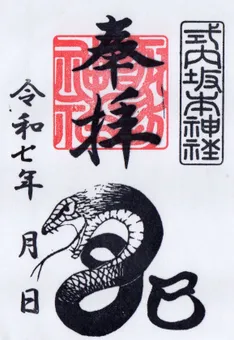 式内坂本神社
奉拝
令和七年 月 日
巳